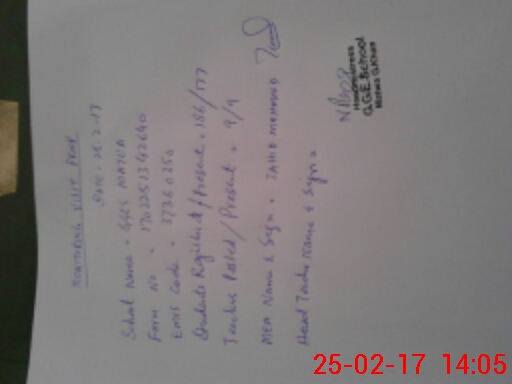 MONITORING VISIT PROF
DATE: 25-2-17
School Name = GGES MATWA
Form No = 17022513 42640
EMIS Code = 37360250
Students Registered / Present = 186/177
Teachers Posted / Present = 9/9
MEA Name & Sign = ZAHID MEHMOOD
Head Teacher Name & Sign =
Headmistress
G.G.E.School
25-02-17 14:05